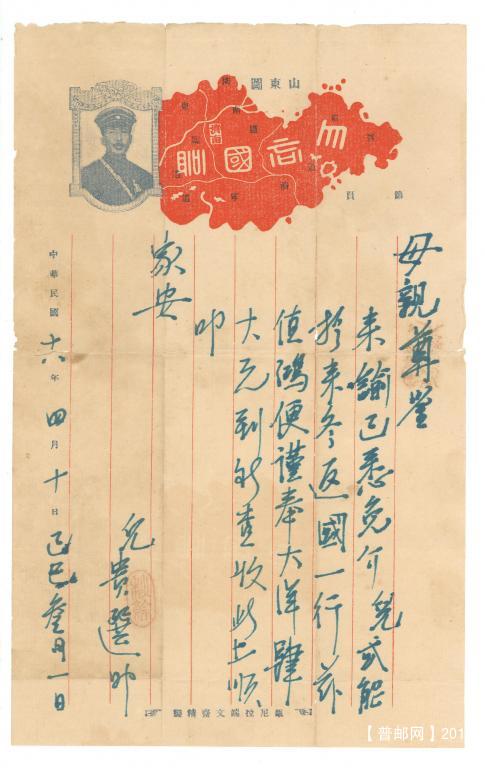 山東圖
毋忘國恥
母親尊鑒
來諭已悉免介兒或能
於來冬返國一行茲
值鴻便謹奉大洋肆
大元到祈查收此上順
叩
家安
兒貴選叩
中華民國十八年四月十日己巳叁月一日
岷尼拉端文齋精製
【普邮网】201